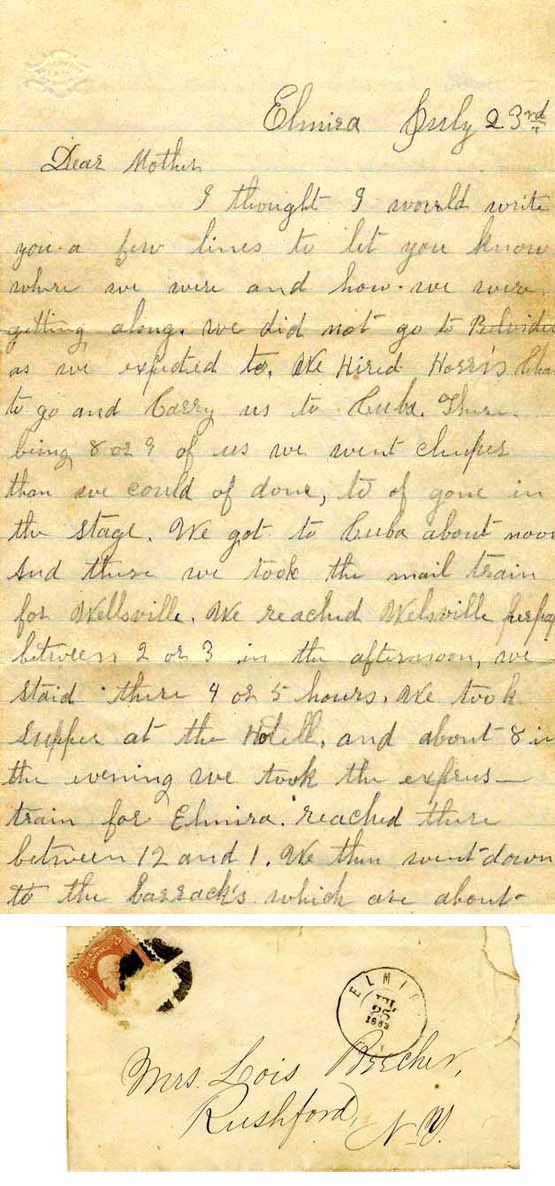 Elmira July 23rd
Dear Mother
I thought I would write
you a few lines to let you know
where we were and how we were
getting along. We did not go to Belvider
as we expected to. We Hired Horris
to go and Carry us to Cuba. There
being 8 or 9 of us we went cheeper
than we could of done, to of gone in
the stage. We got to Cuba about noon
And there we took the mail train
for Wellsville. We reached Welsville
between 2 or 3 in the afternoon, we
staid there 4 or 5 hours. We took
Supper at the Hotell, and about 8 in
the evening we took the express
train for Elmira. reached there
between 12 and 1. We then went down
to the barrack's which are about
ELMIRA
JUL
25
1863
Mrs. Lois Beecher,
Rushford,
N.Y.